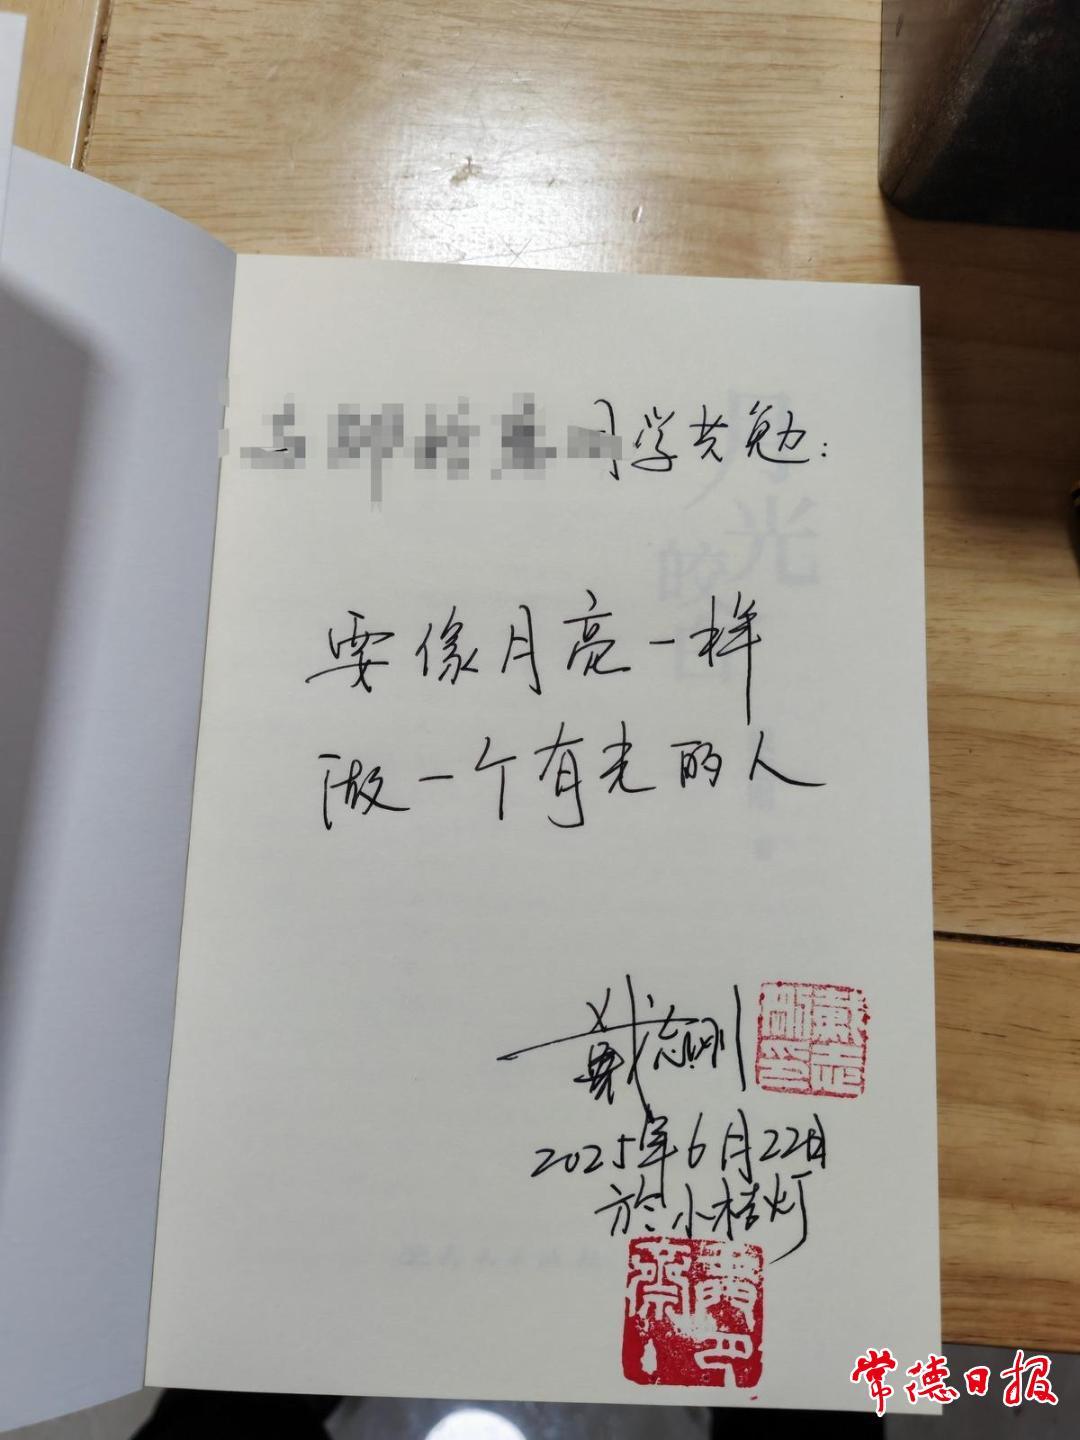 同学共勉：
要像月亮一样
做一个有光的人
戴志刚
戴志刚印
2025年6月22日
於小桔灯
常德日报
月光
皎